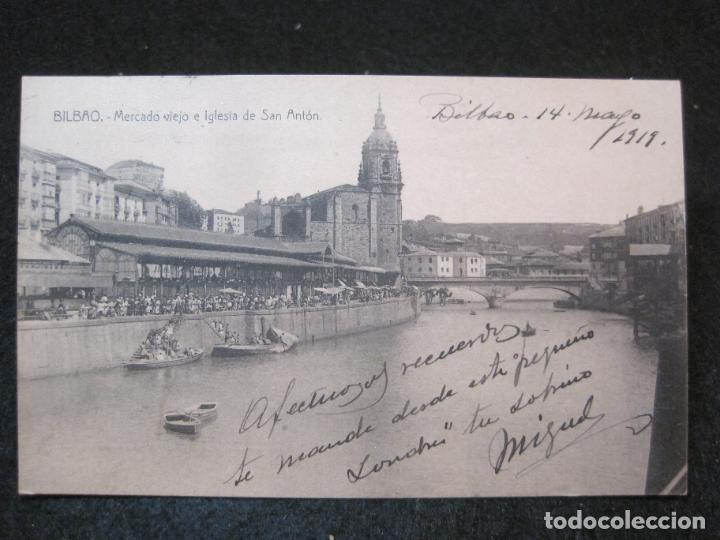 BILBAO. - Mercado viejo e Iglesia de San Antón.
Bilbao - 14 - Mayo
1919.
Afectuosos recuerdos
te manda desde este "pequeño
Londres" tu sobrino
Miguel
todocoleccion.net